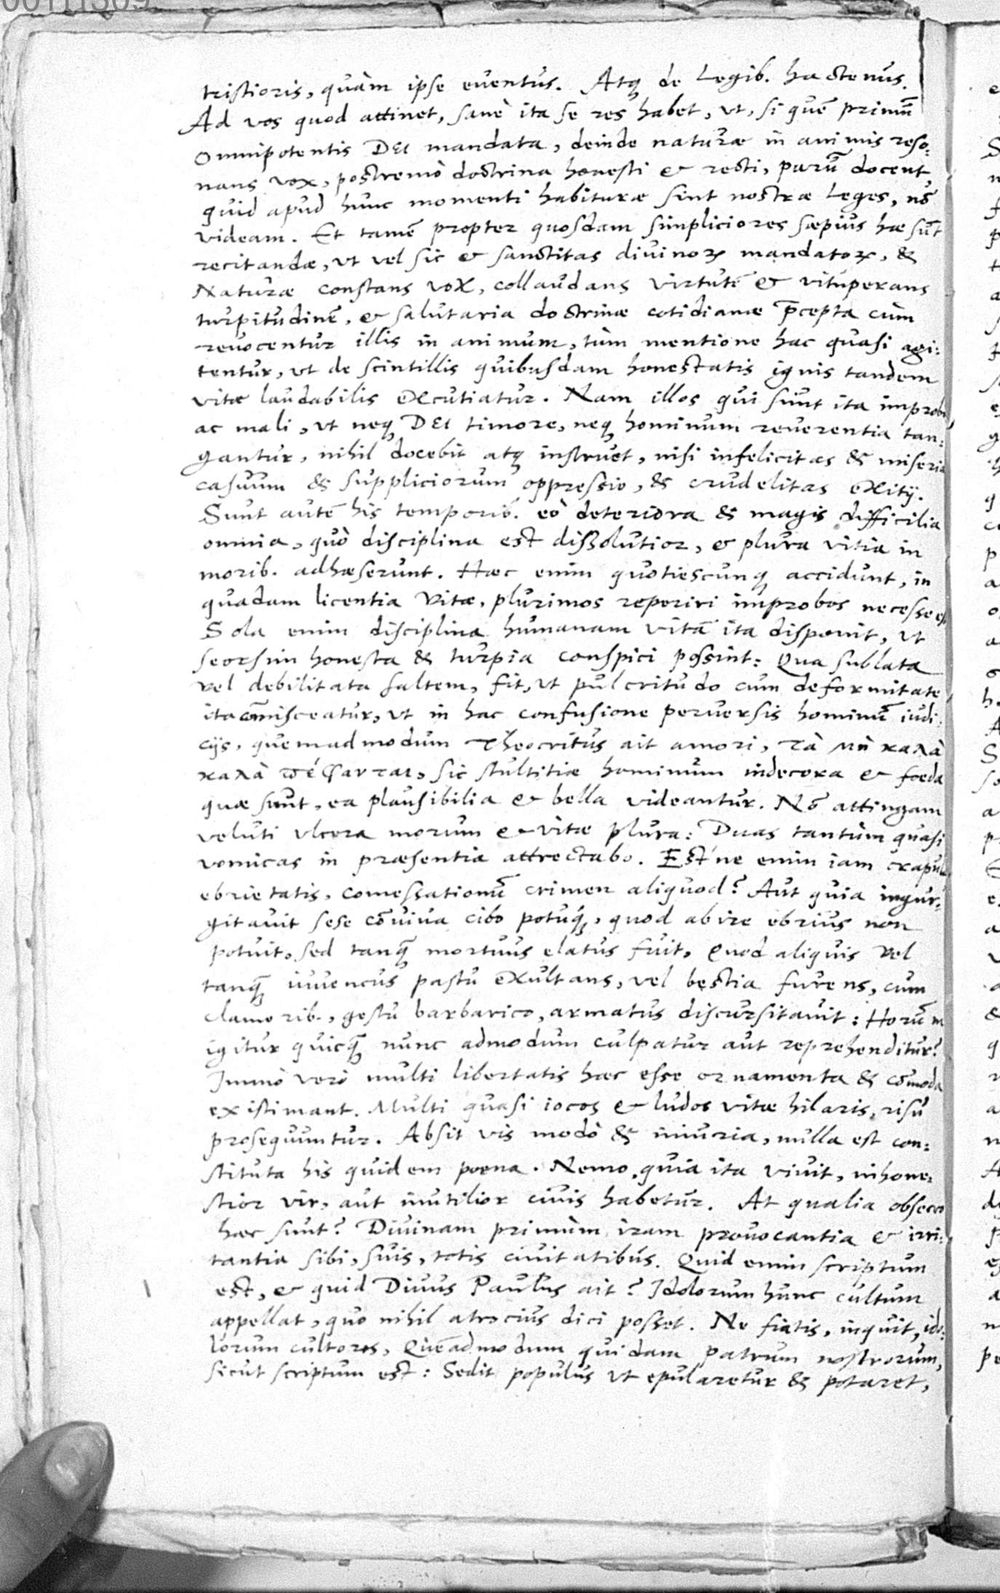 00111309
tristioris, quàm ipse eventus. Atq́ de Legib. hactenus.
Ad vos quod attinet, sanè ita se res habet, ut, si quẽ primũ
omnipotentis DEI mandata, deinde naturæ in animis reso:
nans vox, postremò doctrina honesti & recti, parũ docent
quid apud hunc momenti habituræ sint nostræ Leges, nõ
videam. Et tamẽ propter quosdam simpliciores sæpius hæ sũt
recitandæ, ut vel sic & sanctitas divinoꝝ mandatoꝝ, &
Naturæ constans vox, collaudans virtutẽ & vituperans
turpitudinẽ, & salutaria doctrinæ cotidianæ p̃cepta cùm
revocentur illis in animum, tùm mentione hac quasi agi:
tentur, ut de scintillis quibusdam honestatis ignis tandem
vitæ laudabilis excutiatur. Nam illos qui sunt ita improbi
ac mali, ut neq́ DEI timore, neq́ hominum reverentia tan:
gantur, nihil docebit atq́ instruet, nisi infelicitas & miseria
casuum & suppliciorum oppressio, & crudelitas exitij.
Sunt autẽ his temporib. eò deteriora & magis difficilia
omnia, quò disciplina est dissolutior, & plura vitia in
morib. adhæserunt. Hæc enim quotiescunq́ accidunt, in
quadam licentia vitæ, plurimos reperiri improbos necesse est
Sola enim disciplina humanam vitã ita disponit, ut
seorsim honesta & turpia conspici possint: Qua sublata
vel debilitata saltem, fit, ut pulcritudo cum deformitate
ita cõmisceatur, ut in hac confusione perversis hominũ iudi:
cijs, quemadmodum Theocritus ait amori, τὰ μὴ καλὰ
καλὰ πέφανται, sic stultitiæ hominum indecora & foeda
quæ sunt, ea plausibilia & bella videantur. Nõ attingam
veluti ulcera morum & vitæ plura: Duas tantùm quasi
vomicas in præsentia attrectabo. Est'ne enim iam crapulæ
ebrietatis, comessationũ crimen aliquod? Aut quia ingur:
gitavit sese cõviva cibo potuq́, quod abire ebrius non
potuit, sed tanq̃ mortuus elatus fuit, Quod aliquis vel
tanq̃ iuvencus pastu exultans, vel bestia furens, cum
clamorib., gestu barbarico, armatus discursitavit: Horum
igitur quicq̃ nunc admodum culpatur aut reprehenditur?
Immò verò multi libertatis hæc esse ornamenta & cõmoda
existimant. Multi quasi iocos & ludos vitæ hilaris, risu
prosequuntur. Absit vis modò & iniuria, nulla est con:
stituta his quidem poena. Nemo, quia ita vivit, inhone:
stior vir, aut inutilior civis habetur. At qualia obsecro
hæc sunt? Divinam primùm iram provocantia & irri:
tantia sibi, suis, totis civitatibus. Quid enim scriptum
est, & quid Divus Paulus ait? Idolorum hunc cultum
appellat, quo nihil atrocius dici posset. Ne fiatis, inquit, ido:
lorum cultores, Quẽadmodum quidam patrum nostrorum,
sicut scriptum est: Sedit populus ut epularetur & potaret,